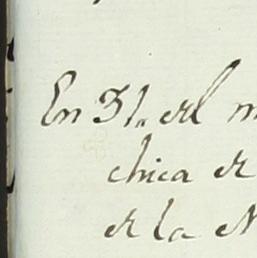 En 31,, del m
chica de
de la N